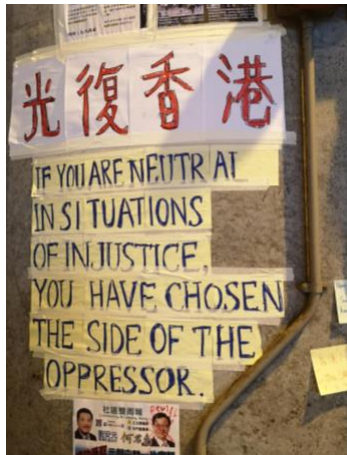 光復香港
IF YOU ARE NEUTRAL
IN SITUATIONS
OF INJUSTICE,
YOU HAVE CHOSEN
THE SIDE OF THE
OPPRESSOR.
社區雙周報